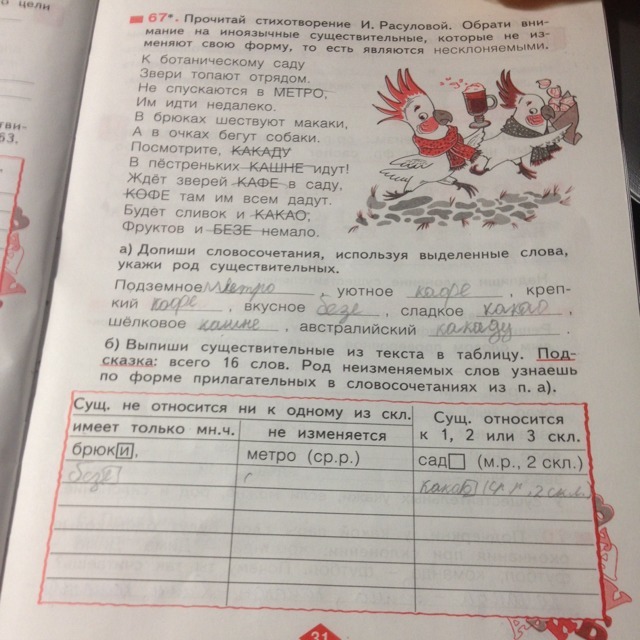 цели
тви-
53.
67*. Прочитай стихотворение И. Расуловой. Обрати вни-
мание на иноязычные существительные, которые не из-
меняют свою форму, то есть являются несклоняемыми.
К ботаническому саду
Звери топают отрядом.
Не спускаются в МЕТРО,
Им идти недалеко.
В брюках шествуют макаки,
А в очках бегут собаки.
Посмотрите, КАКАДУ
В пёстреньких КАШНЕ идут!
Ждёт зверей КАФЕ в саду,
КОФЕ там им всем дадут.
Будет сливок и КАКАО,
Фруктов и БЕЗЕ немало.
а) Допиши словосочетания, используя выделенные слова,
укажи род существительных.
Подземное метро, уютное кафе, креп-
кий кофе, вкусное безе, сладкое какао,
шёлковое кашне, австралийский какаду.
б) Выпиши существительные из текста в таблицу. Под-
сказка: всего 16 слов. Род неизменяемых слов узнаешь
по форме прилагательных в словосочетаниях из п. а).
Сущ. не относится ни к одному из скл.
Сущ. относится
к 1, 2 или 3 скл.
имеет только мн.ч. не изменяется
брюки, метро (ср.р.) сад (м.р., 2 скл.)
безе какао ср.р., 2 скл.
31